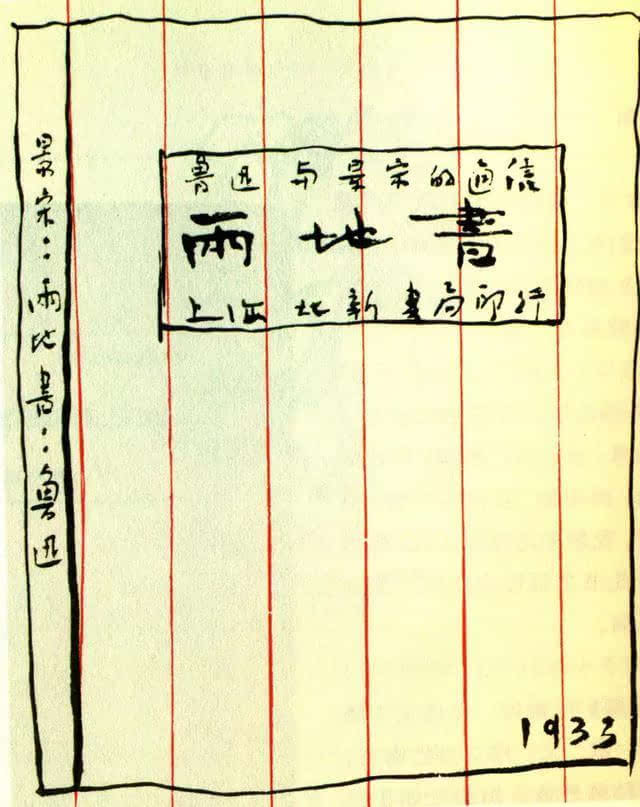 魯迅与景宋的通信
兩地書
上海北新書局印行
景宋：兩地書：魯迅
1933